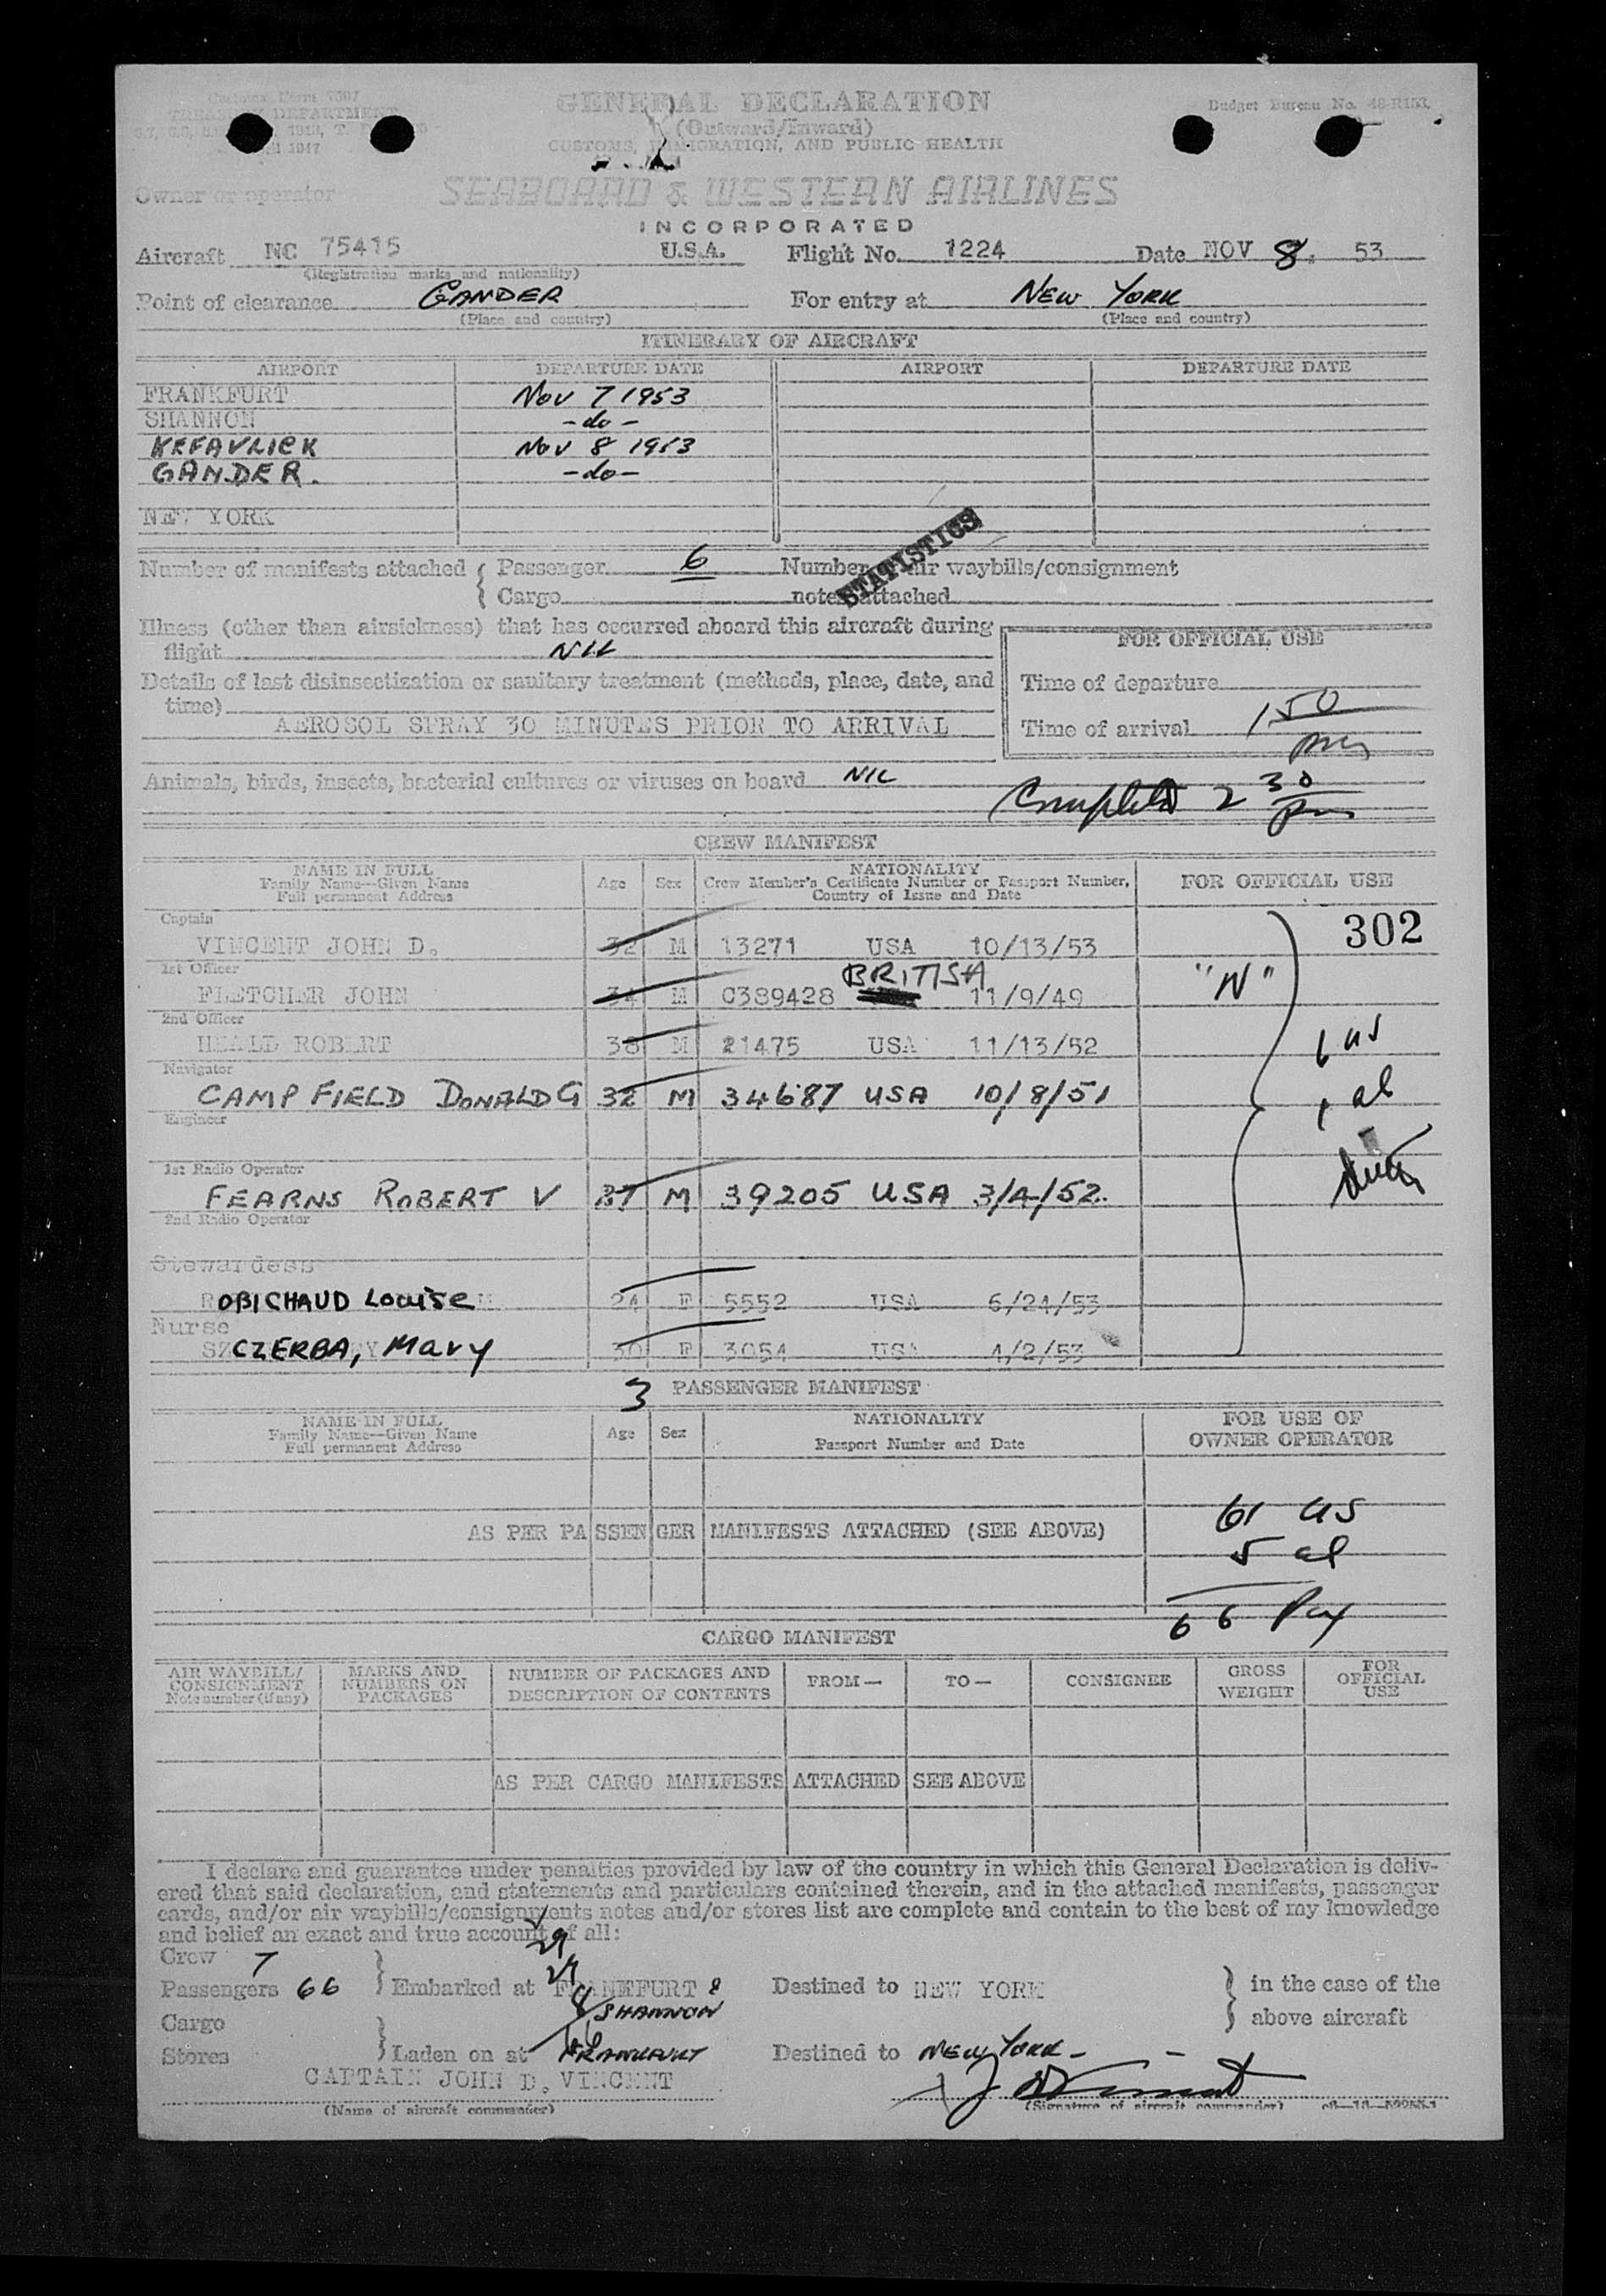 Customs Form 7507
TREASURY DEPARTMENT
1947
GENERAL DECLARATION
(Outward/Inward)
CUSTOMS, IMMIGRATION, AND PUBLIC HEALTH
Budget Bureau No. 48-R153.
Owner or operator SEABOARD & WESTERN AIRLINES
INCORPORATED
Aircraft NC 75415 U.S.A. Flight No. 1224 Date NOV 8. 53
(Registration marks and nationality)
Point of clearance GANDER For entry at NEW YORK
(Place and country) (Place and country)
ITINERARY OF AIRCRAFT
AIRPORT DEPARTURE DATE AIRPORT DEPARTURE DATE
FRANKFURT NOV 7 1953
SHANNON -do-
KEFAVLICK NOV 8 1953
GANDER. -do-
NEW YORK
STATISTICS
Number of manifests attached { Passenger 6 Number air waybills/consignment
Cargo notes attached
Illness (other than airsickness) that has occurred aboard this aircraft during
flight NIL
FOR OFFICIAL USE
Details of last disinsectization or sanitary treatment (methods, place, date, and
time)
Time of departure
AEROSOL SPRAY 30 MINUTES PRIOR TO ARRIVAL
Time of arrival 1 50 pm
Animals, birds, insects, bacterial cultures or viruses on board NIL
Completed 2 30 pm
CREW MANIFEST
NAME IN FULL
Family Name—Given Name
Full permanent Address
Age Sex
NATIONALITY
Crew Member's Certificate Number or Passport Number,
Country of Issue and Date
FOR OFFICIAL USE
Captain
302
VINCENT JOHN D. 32 M 13271 USA 10/13/53
1st Officer
FLETCHER JOHN 34 M C389428 BRITISH 11/9/49 "N"
2nd Officer
HEALD ROBERT 38 M 21475 USA 11/13/52
6 us
Navigator
CAMPFIELD DONALD G 32 M 34687 USA 10/8/51
1 al
Engineer
1st Radio Operator
FEARNS ROBERT V 27 M 39205 USA 3/4/52.
2nd Radio Operator
Stewardess
ROBICHAUD Louise 24 F 5552 USA 6/24/53
Nurse
SZCZERBA, Mary 30 F 3054 USA 4/2/53
3 PASSENGER MANIFEST
NAME IN FULL
Family Name—Given Name
Full permanent Address
Age Sex
NATIONALITY
Passport Number and Date
FOR USE OF
OWNER OPERATOR
61 us
AS PER PASSENGER MANIFESTS ATTACHED (SEE ABOVE)
5 al
66 Pax
CARGO MANIFEST
AIR WAYBILL/
CONSIGNMENT
Note number (if any)
MARKS AND
NUMBERS ON
PACKAGES
NUMBER OF PACKAGES AND
DESCRIPTION OF CONTENTS
FROM— TO— CONSIGNEE
GROSS
WEIGHT
FOR
OFFICIAL
USE
AS PER CARGO MANIFESTS ATTACHED SEE ABOVE
I declare and guarantee under penalties provided by law of the country in which this General Declaration is deliv-
ered that said declaration, and statements and particulars contained therein, and in the attached manifests, passenger
cards, and/or air waybills/consignments notes and/or stores list are complete and contain to the best of my knowledge
and belief an exact and true account of all:
Crew 7
Passengers 66 } Embarked at FRANKFURT & SHANNON Destined to NEW YORK } in the case of the
above aircraft
Cargo
Stores } Laden on at FRANKFURT Destined to NEW YORK -
CAPTAIN JOHN D. VINCENT
(Name of aircraft commander) (Signature of aircraft commander)